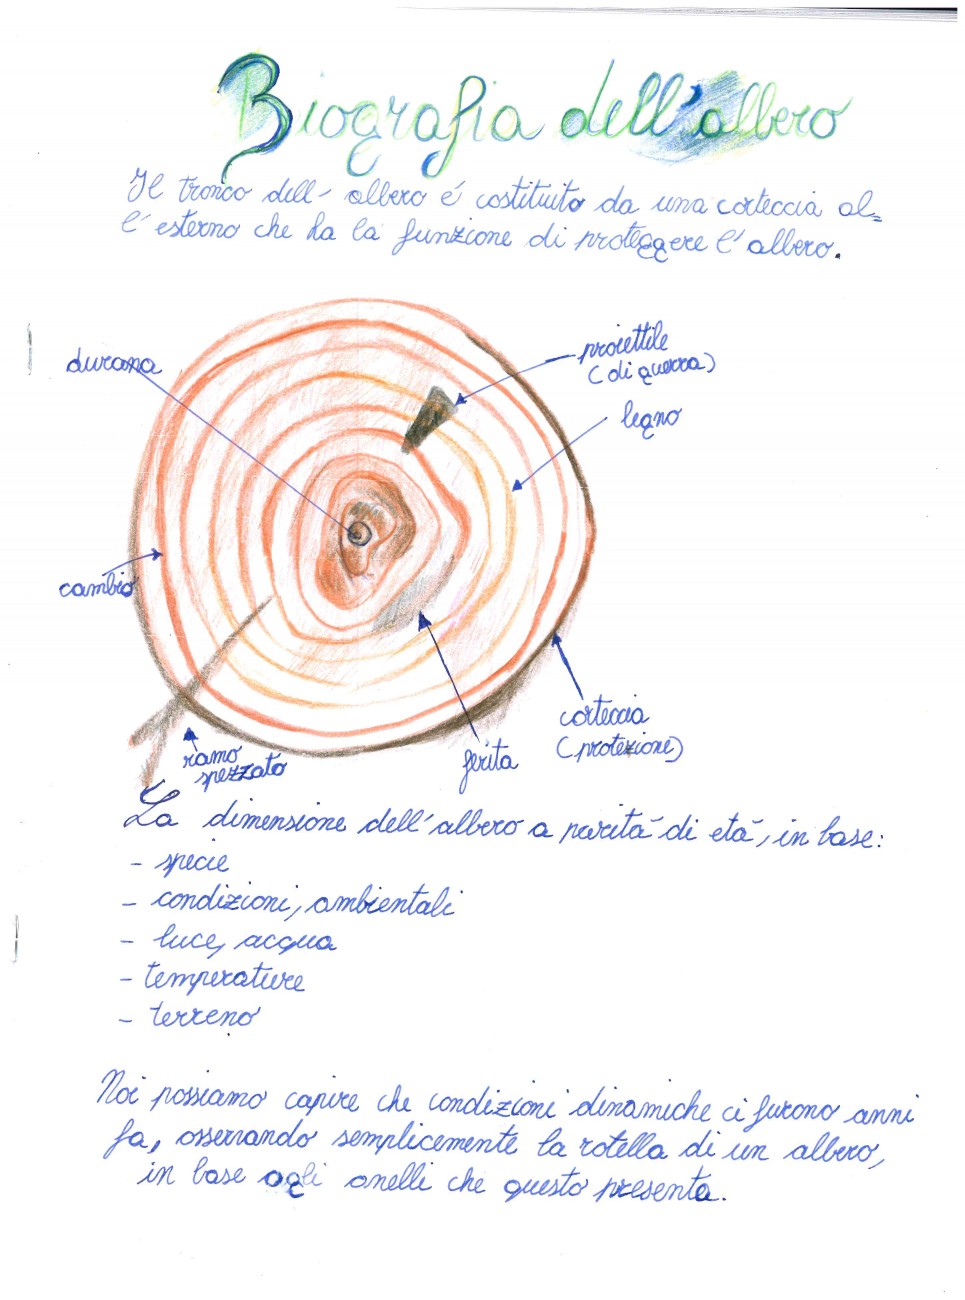 Biografia dell'albero
Il tronco dell'albero é costituito da una corteccia al=
l'esterno che ha la funzione di proteggere l'albero.
durana
proiettile
(di guerra)
legno
cambio
ferita
corteccia
(protezione)
ramo
spezzato
La dimensione dell'albero a parità di età, in base:
- specie
- condizioni, ambientali
- luce, acqua
- temperature
- terreno
Noi possiamo capire che condizioni dinamiche ci furono anni
fa, osservando semplicemente la rotella di un albero,
in base agli anelli che questo presenta.